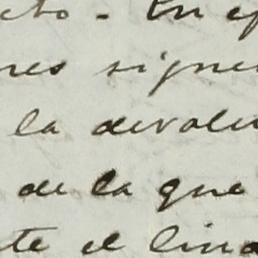 cto - En ef
res sigue
la devolu
de la que
te el lina